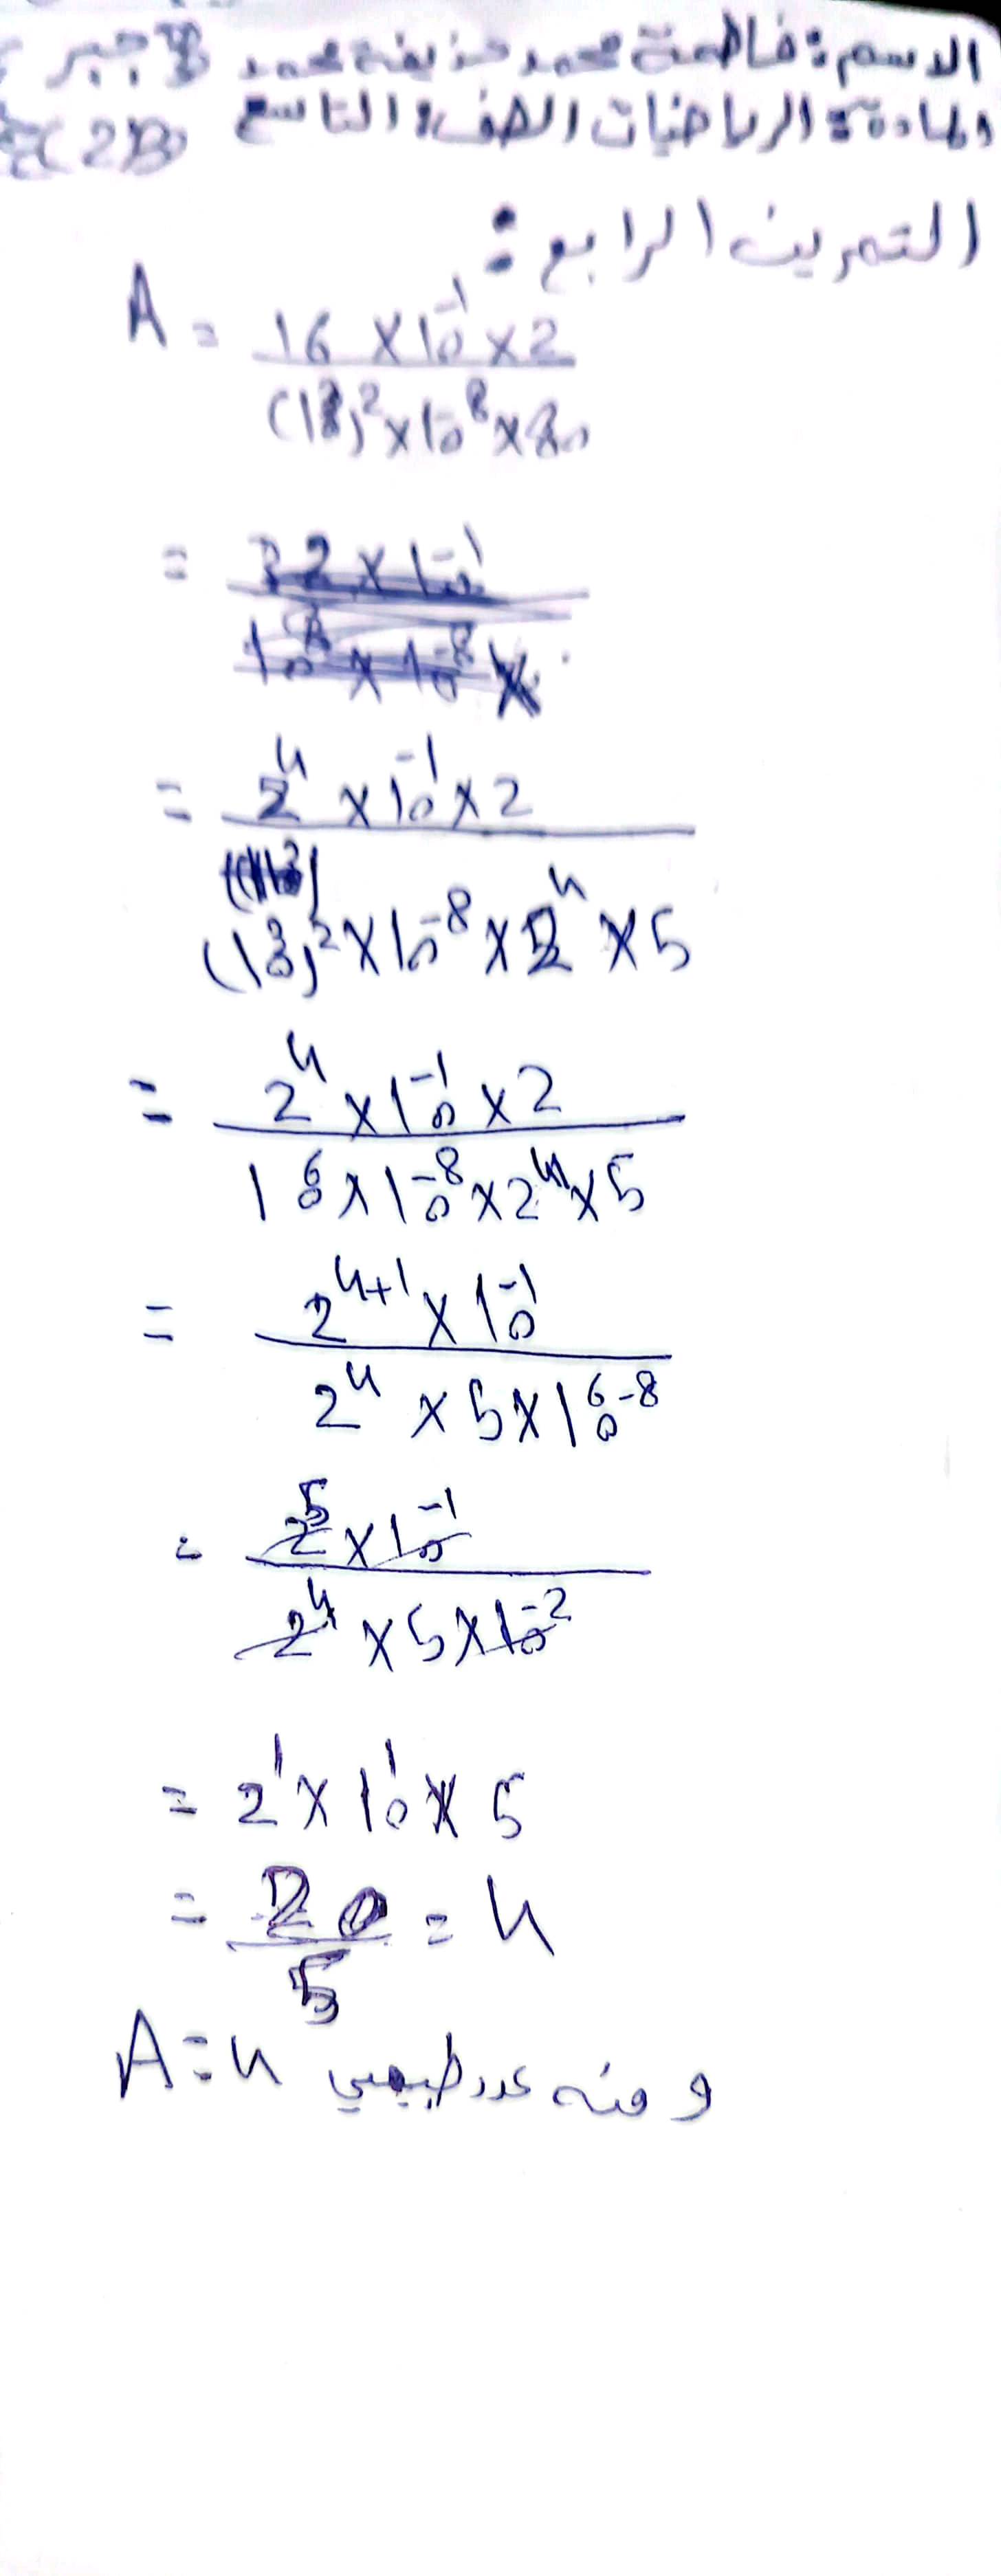 الاسم: فاطمة محمد حذيفة محمد
المادة: الرياضيات الصف: التاسع
(2)
التمرين الرابع:
A = \frac{16 × 10^{-1} × 2}{(10^3)^2 × 10^{-8} × 80}
= \frac{2^4 × 10^{-1} × 2}{(10^3)^2 × 10^{-8} × 2^4 × 5}
= \frac{2^4 × 10^{-1} × 2}{10^6 × 10^{-8} × 2^4 × 5}
= \frac{2^{4+1} × 10^{-1}}{2^4 × 5 × 10^{6-8}}
= \frac{2^5 × 10^{-1}}{2^4 × 5 × 10^{-2}}
= 2^1 × 10^1 × 5
= \frac{20}{5} = 4
ومنه عدد طبيعي A = 4